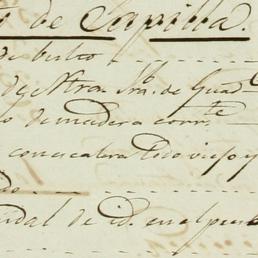 de Capilla.
de bulto
de Ntra. Sra. de Guad
de madera corrte
con escalera todo viejo y
do.
de id. en el pue